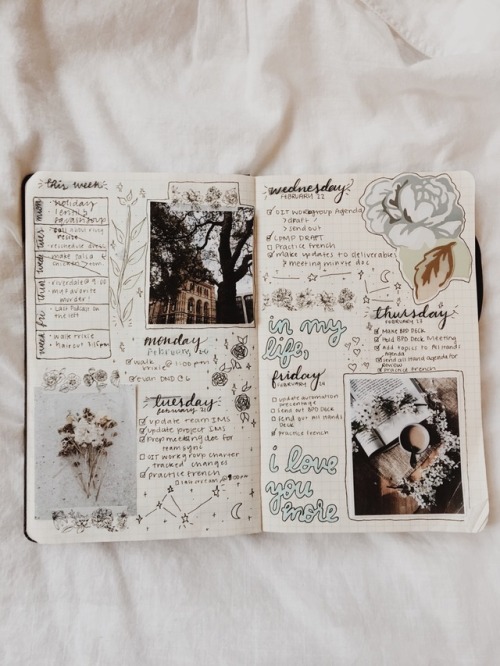 this week
mon
tues
wed
thur
week
fri
holiday
recipe
make salsa
chicken
my favorite
murder!
Last Podcast on
the left
walk trixie
monday
february
walk
@ 1:00pm
tuesday
update team IMS
update project IMS
prep meeting doc for
team sync
DIT workgroup charter
tracked changes
practice french
wednesday
FEBRUARY 12
DIT workgroup Agenda
> draft
> send out
COMP DRAFT
Practice french
make updates to deliverables
> meeting minute doc
in my
life,
thursday
FEBRUARY 13
Make BPD DECK
Hold BPD Deck Meeting
Add topics to All Hands
Agenda
send all Hand agenda for
Review
Practice french
friday
FEBRUARY
update automation
percentage
send out BPD DECK
send out All Hands
Deck
Practice french
i love
you
more